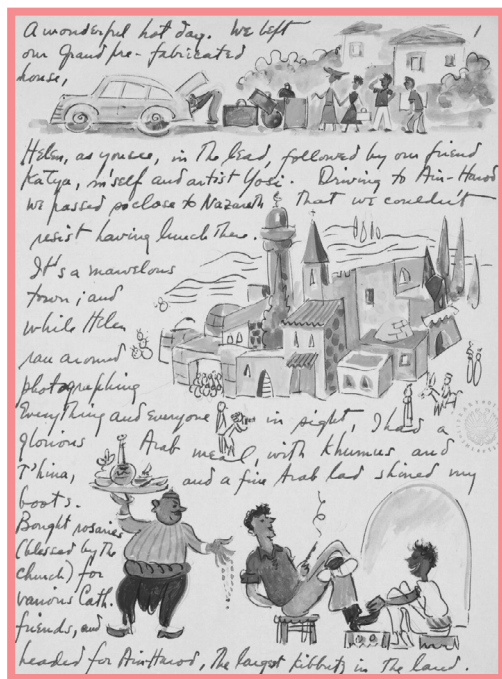 A wonderful hot day. We left
1
our grand pre-fabricated
house,
Helen, as you see, in the lead, followed by our friend
Katya, m'self and artist Yosi. Driving to Ain-Harod
we passed so close to Nazareth that we couldn't
resist having lunch there.
It's a marvelous
town; and
while Helen
ran around
photographing
Everything and everyone in sight, I had a
glorious Arab meal, with khumus and
T'hina, and a fine Arab lad shined my
boots.
Bought rosaries
(blessed by the
church) for
various Cath.
friends, and
headed for Ain-Harod, The largest kibbutz in the land.